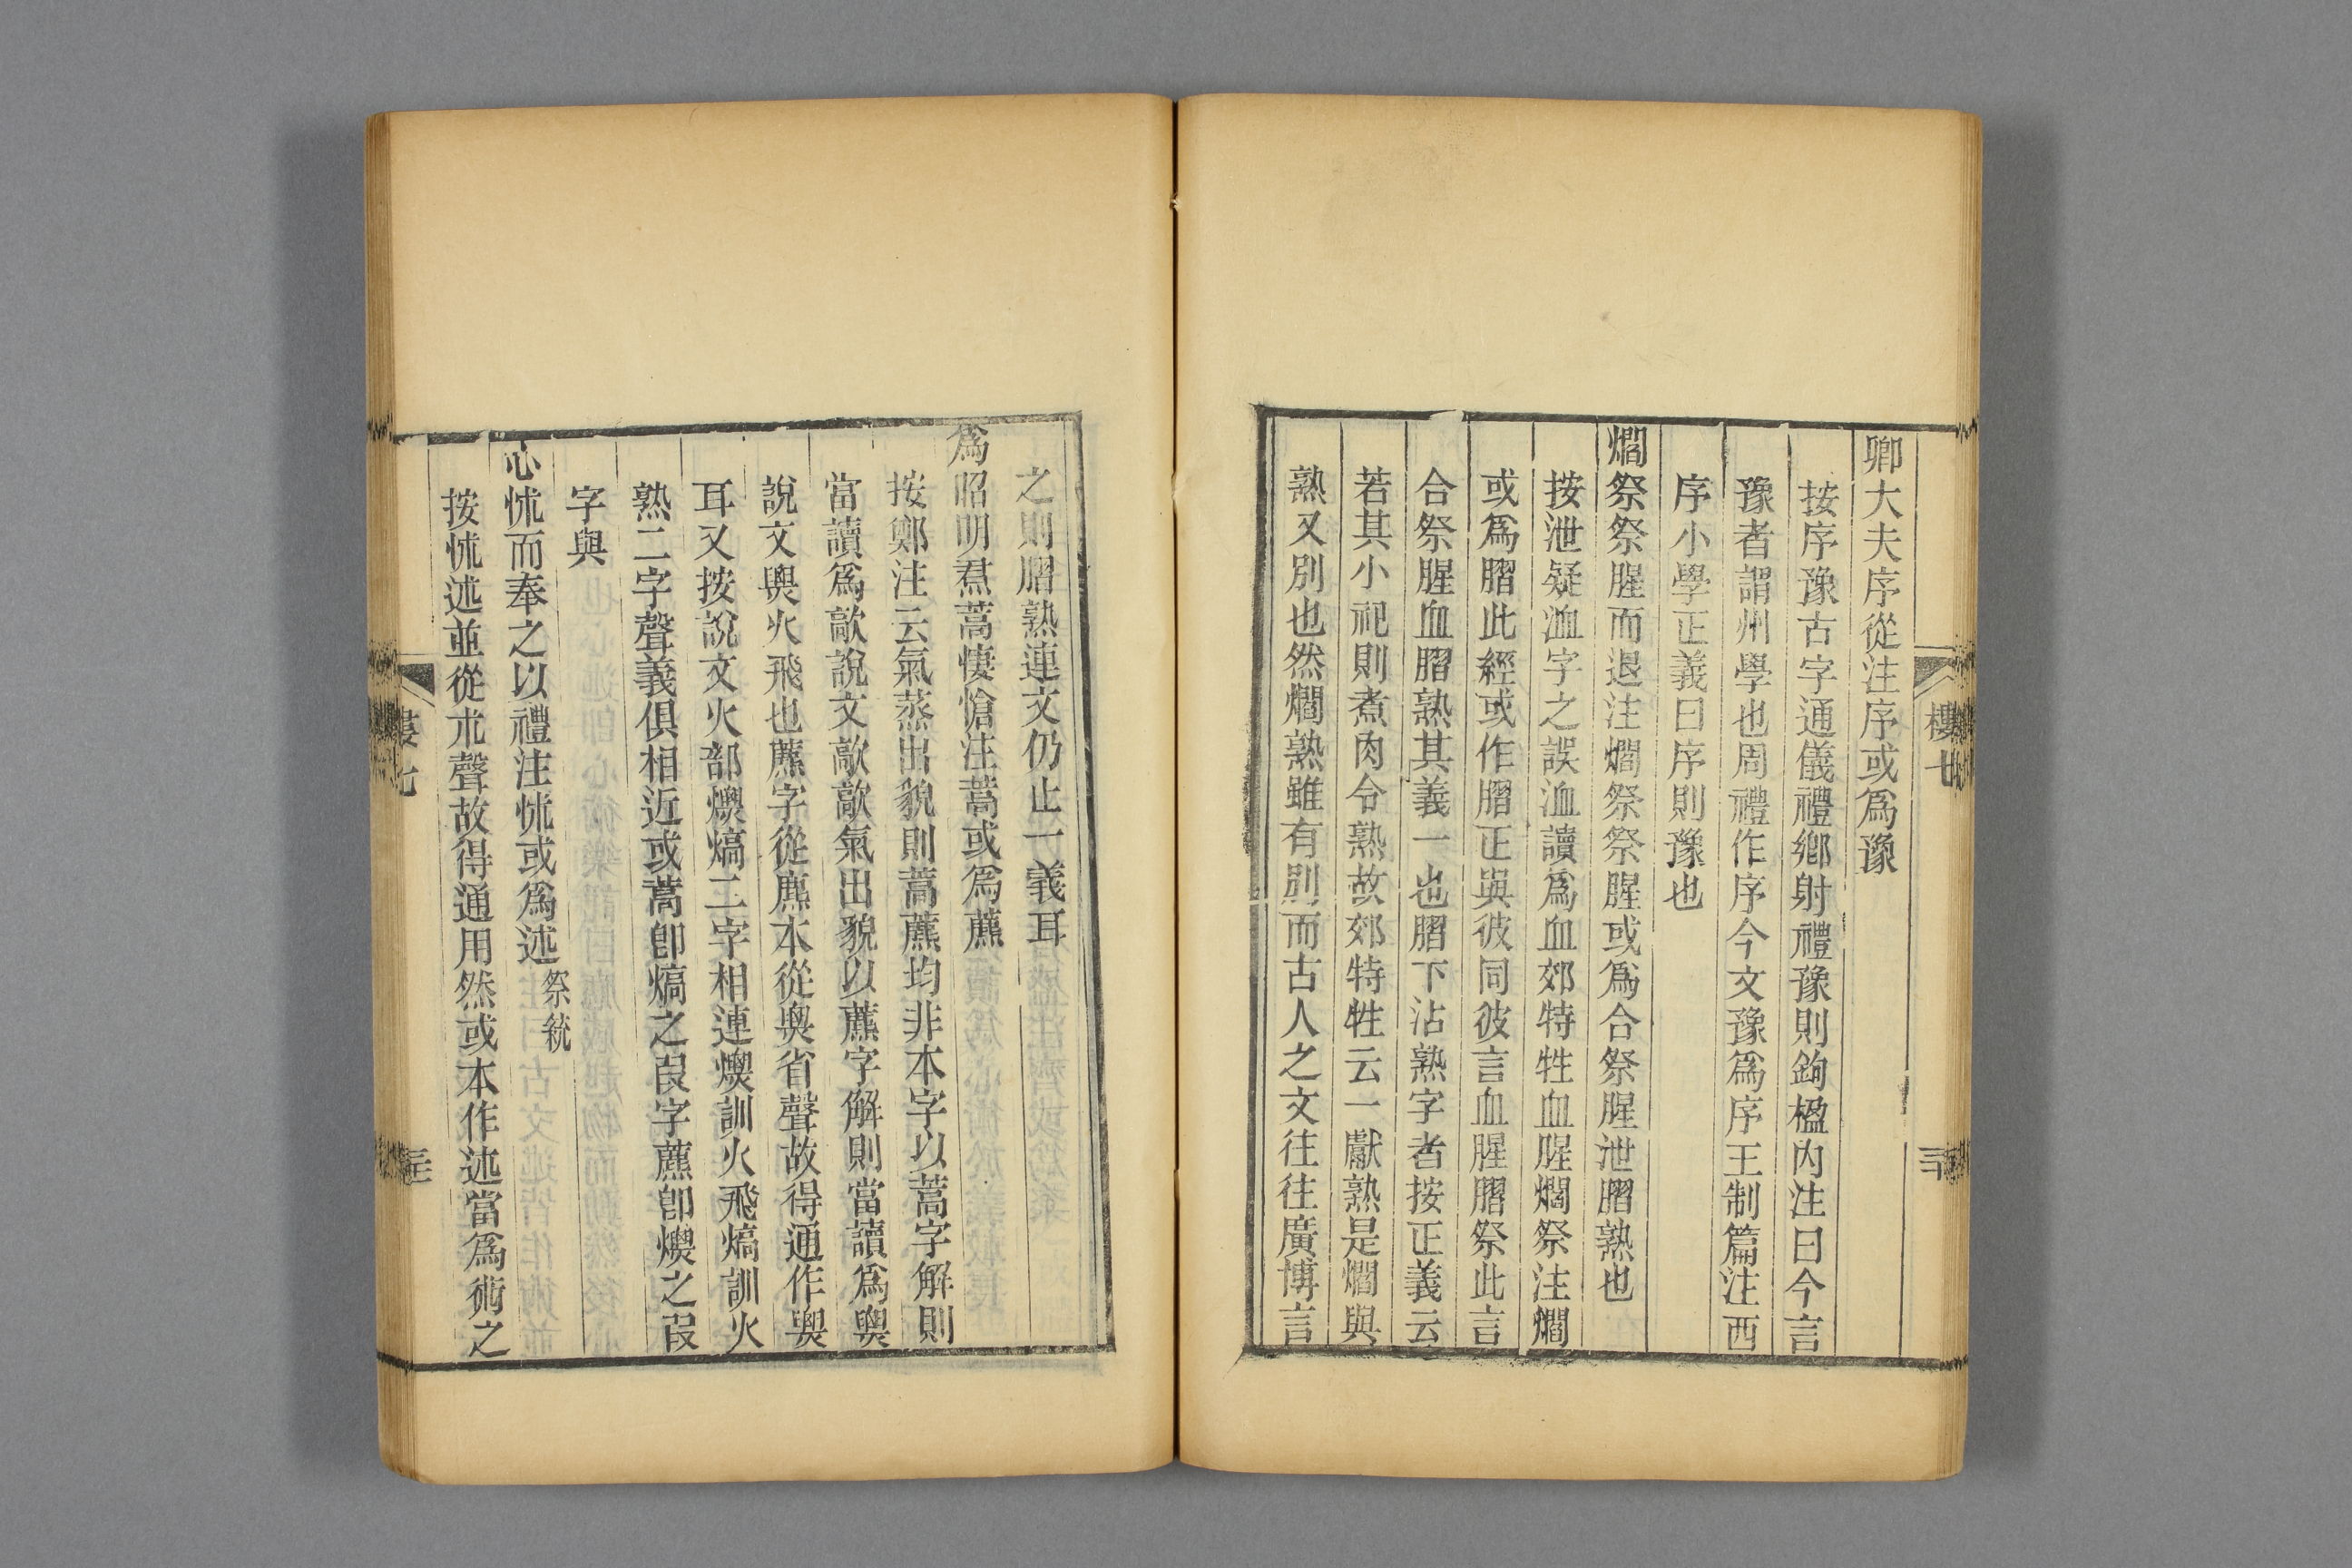 卿大夫序從注序或爲豫
按序豫古字通儀禮鄉射禮豫則鉤楹內注曰今言
豫者謂州學也周禮作序今文豫爲序王制篇注西
序小學正義曰序則豫也
爓祭祭腥而退注爓祭祭腥或爲合祭腥泄膶熟也
按泄疑洫字之誤洫讀爲血郊特牲血腥爓祭注爓
或爲膶此經或作膶正與彼同彼言血腥膶祭此言
合祭腥血膶熟其義一也膶下沾熟字者按正義云
若其小祀則煮肉令熟故郊特牲云一獻熟是爓與
熟又別也然爓熟雖有別而古人之文往往廣博言
樓七
之則膶熟連文仍止一義耳
爲昭明焄蒿悽愴注蒿或爲藨
按鄭注云氣蒸出貌則蒿藨均非本字以蒿字解則
當讀爲歊說文歊歊氣出貌以藨字解則當讀爲㷼
說文㷼火飛也藨字從麃本從㷼省聲故得通作㷼
耳又按說文火部熛熇二字相連熛訓火飛熇訓火
熱二字聲義俱相近或蒿卽熇之叚字藨卽熛之叚
字與
心怵而奉之以禮注怵或爲述 祭統
按怵述並從朮聲故得通用然或本作述當爲術之